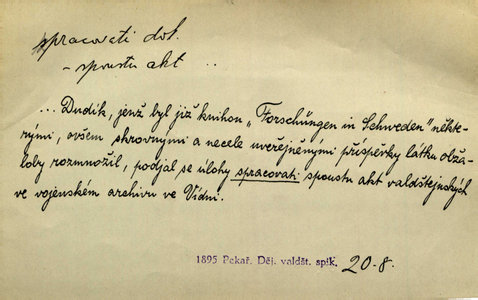 spracovati dok.
- spoustu akt ..
... Dudík, jenž byl již knihou „Forschüngen in Schweden" někte-
rými, ovšem skrovnými a necele uveřejněnými příspěvky látku obža-
loby rozmnožil, podjal se úlohy spracovati spoustu akt valdštejnských
ve vojenském archivu ve Vídni.
1895 Pekař. Děj. valdšt. spik. 20-8.